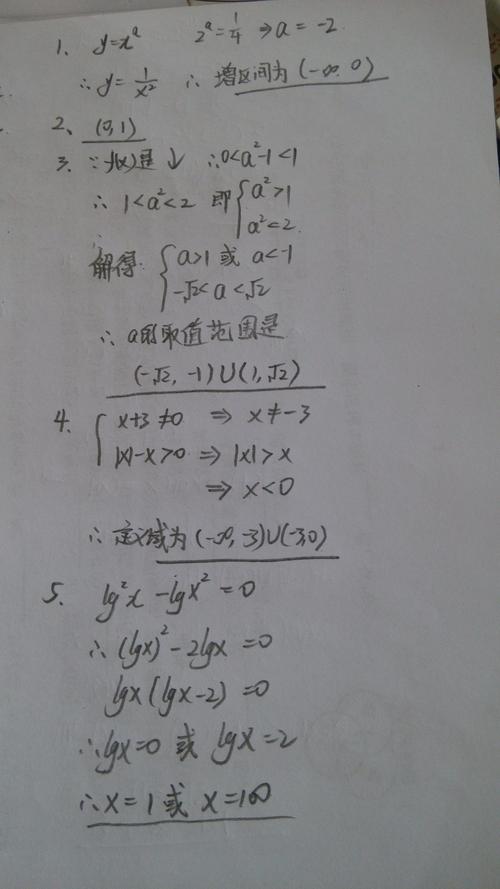 1、 y=x^a 2^a=1/4 ⇒a=-2
∴y=1/x² ∴增区间为(-∞,0)
2、 (0,1)
3、∵f(x)是↓ ∴0<a²-1<1
∴ 1<a²<2 即{a²>1
a²<2.
解得:{a>1 或 a<-1
-√2<a<√2
∴a的取值范围是
(-√2,-1)∪(1,√2)
4、{x+3≠0 ⇒ x≠-3
|x|-x>0 ⇒ |x|>x
⇒ x<0
∴定义域为(-∞,-3)∪(-3,0)
5、 lg²x-lgx²=0
∴(lgx)²-2lgx=0
lgx(lgx-2)=0
∴lgx=0 或 lgx=2
∴x=1或 x=100